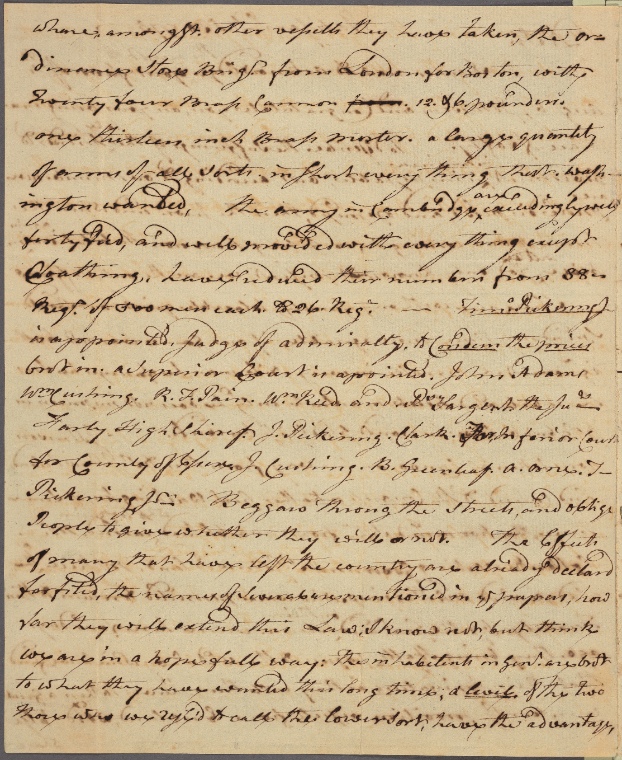 where, amongst other vessells they have taken, the or=
dinance Store Brigg. from London for Boston, with
twenty four Brass Cannon 12. & 6 pounders.
one thirteen inch Brass morter. a large quantity
of arms of all sorts. in short every thing that. Wash-
ington wanted, The army in Cambridge are exceedingly well
fortyfied, and well provided with every thing except
Cloathing, have reduced their numbers from 38-
Regt. of 800 men each to 26 Regt. — Timo. Pickering Jr
is appointed, Judge of admiralty, to Condem the prices
brot in. a Superior Court is apointed. John Adams
Wm Cushing. R. T. Pain. Wm Reed and Sargent the Jud
Farly High Sheref. J. Pickering. Clark. Inferior Court
for County of Essex J. Cushing. B. Greenleaf. a. orne. T-
Pickering Jr Beggars throng the Streets, and oblige
People to give whether they will or not. The Effects
of many that have left the country are already declard
forfited, the names of severa are mentioned in ye papers, how
far they will extend this Law, I know not, but think
we are in a hopefull way: the inhabitents in genl. are brot
to what they have wanted this long time; a levil, of the two
those who we used to call the lower sort, have the advantage,